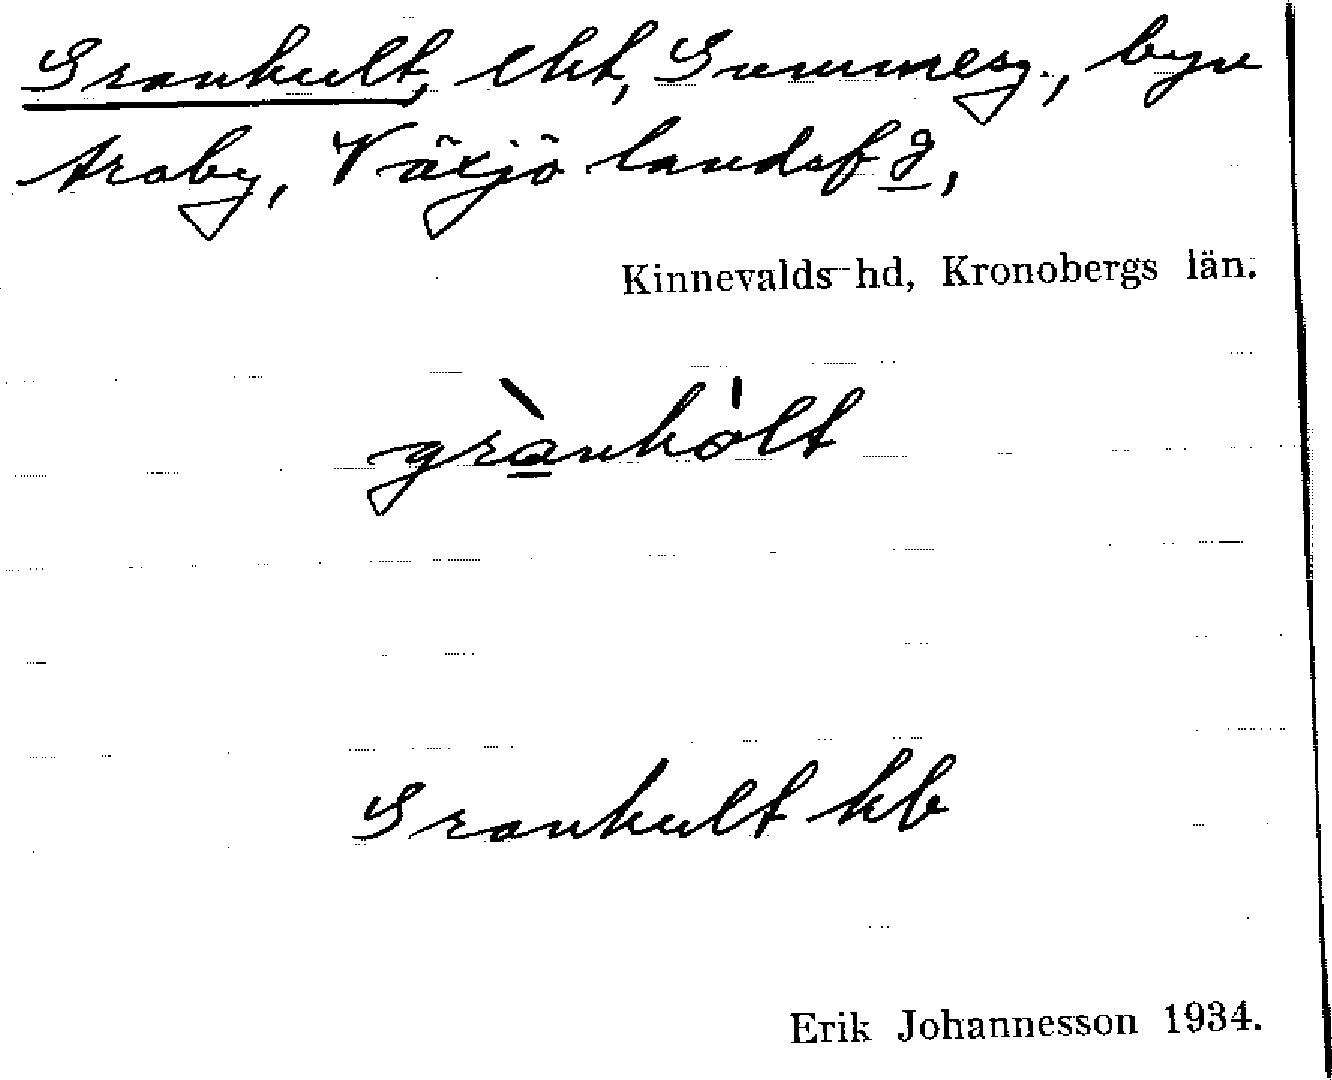 Granhult, lht, Gummesg., byn
Araby, Växjö landsf g,
Kinnevalds hd, Kronobergs län.
grànhòlt
Granhult kb
Erik Johannesson 1934.